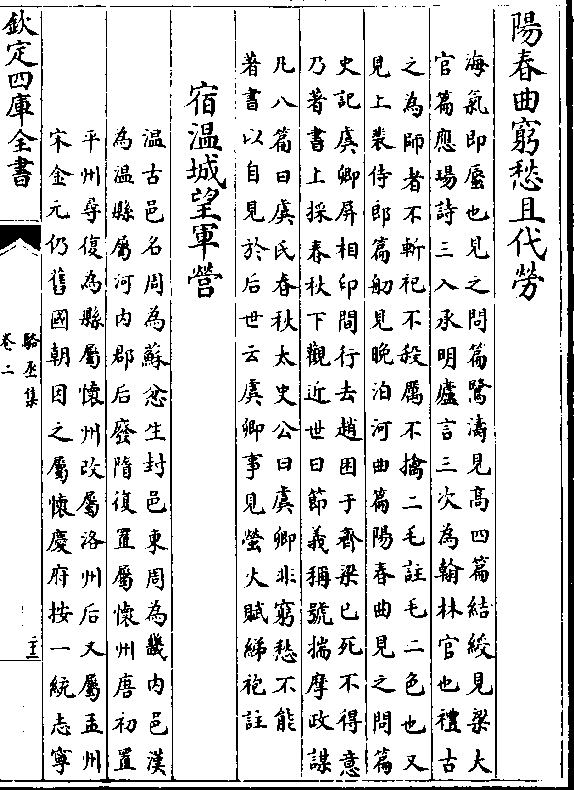 陽春曲窮愁且代勞
海氣即蜃也見之問篇驚濤見高四篇結綬見梁大
官篇應瑒詩三入承明廬言三次為翰林官也禮古
之為師者不斬祀不殺厲不擒二毛註毛二色也又
見上裴侍郎篇舠見晚泊河曲篇陽春曲見之問篇
史記虞卿屏相印間行去趙困于齊梁已死不得意
乃著書上採春秋下觀近世曰節義稱號揣摩政謀
凡八篇曰虞氏春秋太史公曰虞卿非窮愁不能
著書以自見於后世云虞卿事見螢火賦綈袍註
宿温城望軍營
温古邑名周為蘇忿生封邑東周為畿内邑漢
為温縣屬河内郡后廢隋復置屬懷州唐初置
平州尋復為縣屬懷州改屬洛州后又屬孟州
宋金元仍舊國朝因之屬懷慶府按一統志寧
欽定四庫全書
駱丞集
卷二